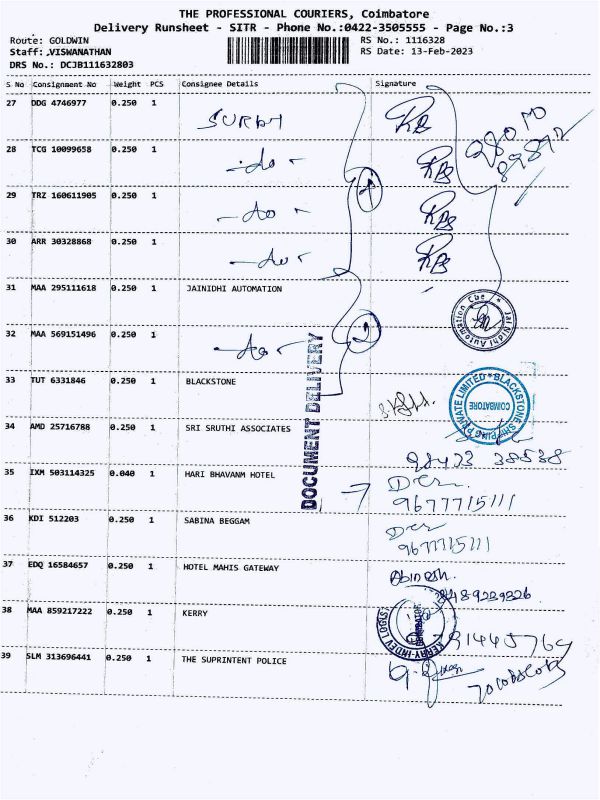 THE PROFESSIONAL COURIERS, Coimbatore
Delivery Runsheet - SITR - Phone No.:0422-3505555 - Page No.:3
Route: GOLDWIN
RS No.: 1116328
Staff: ,VISWANATHAN
RS Date: 13-Feb-2023
DRS No.: DCJB111632803
S No Consignment No Weight PCS Consignee Details Signature
27 DDG 4746977 0.250 1
28 TCG 10099658 0.250 1 -do-
29 TRZ 160611905 0.250 1 -do-
30 ARR 30328868 0.250 1 -do-
31 MAA 295111618 0.250 1 JAINIDHI AUTOMATION
32 MAA 569151496 0.250 1 -do-
33 TUT 6331846 0.250 1 BLACKSTONE
34 AMD 25716788 0.250 1 SRI SRUTHI ASSOCIATES
35 IXM 503114325 0.040 1 HARI BHAVANM HOTEL
9677715111
36 KDI 512203 0.250 1 SABINA BEGGAM
9677715111
37 EDQ 16584657 0.250 1 HOTEL MAHIS GATEWAY
38 MAA 859217222 0.250 1 KERRY
39 SLM 313696441 0.250 1 THE SUPRINTENT POLICE
DOCUMENT DELIVERY
Jai Nidhi Automation Cbe
BLACKSTONE SHIPPING PRIVATE LIMITED
COIMBATORE